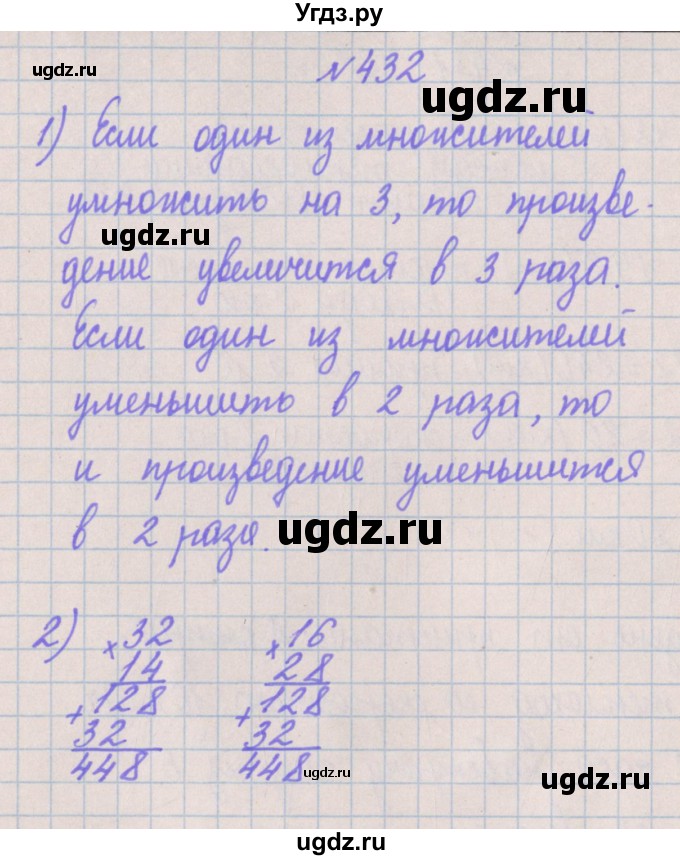 Угдз.ру
ugdz.ru
№432
ugdz.ru
1) Если один из множителей
умножить на 3, то произве-
ugdz.ru
дение увеличится в 3 раза.
Если один из множителей
уменьшить в 2 раза, то
и произведение уменьшится
в 2 раза.
ugdz.ru
2) ×32 ×16
14 28
+128 +128
32 32
448 448
ugdz.ru
ugdz.ru
ugdz.ru